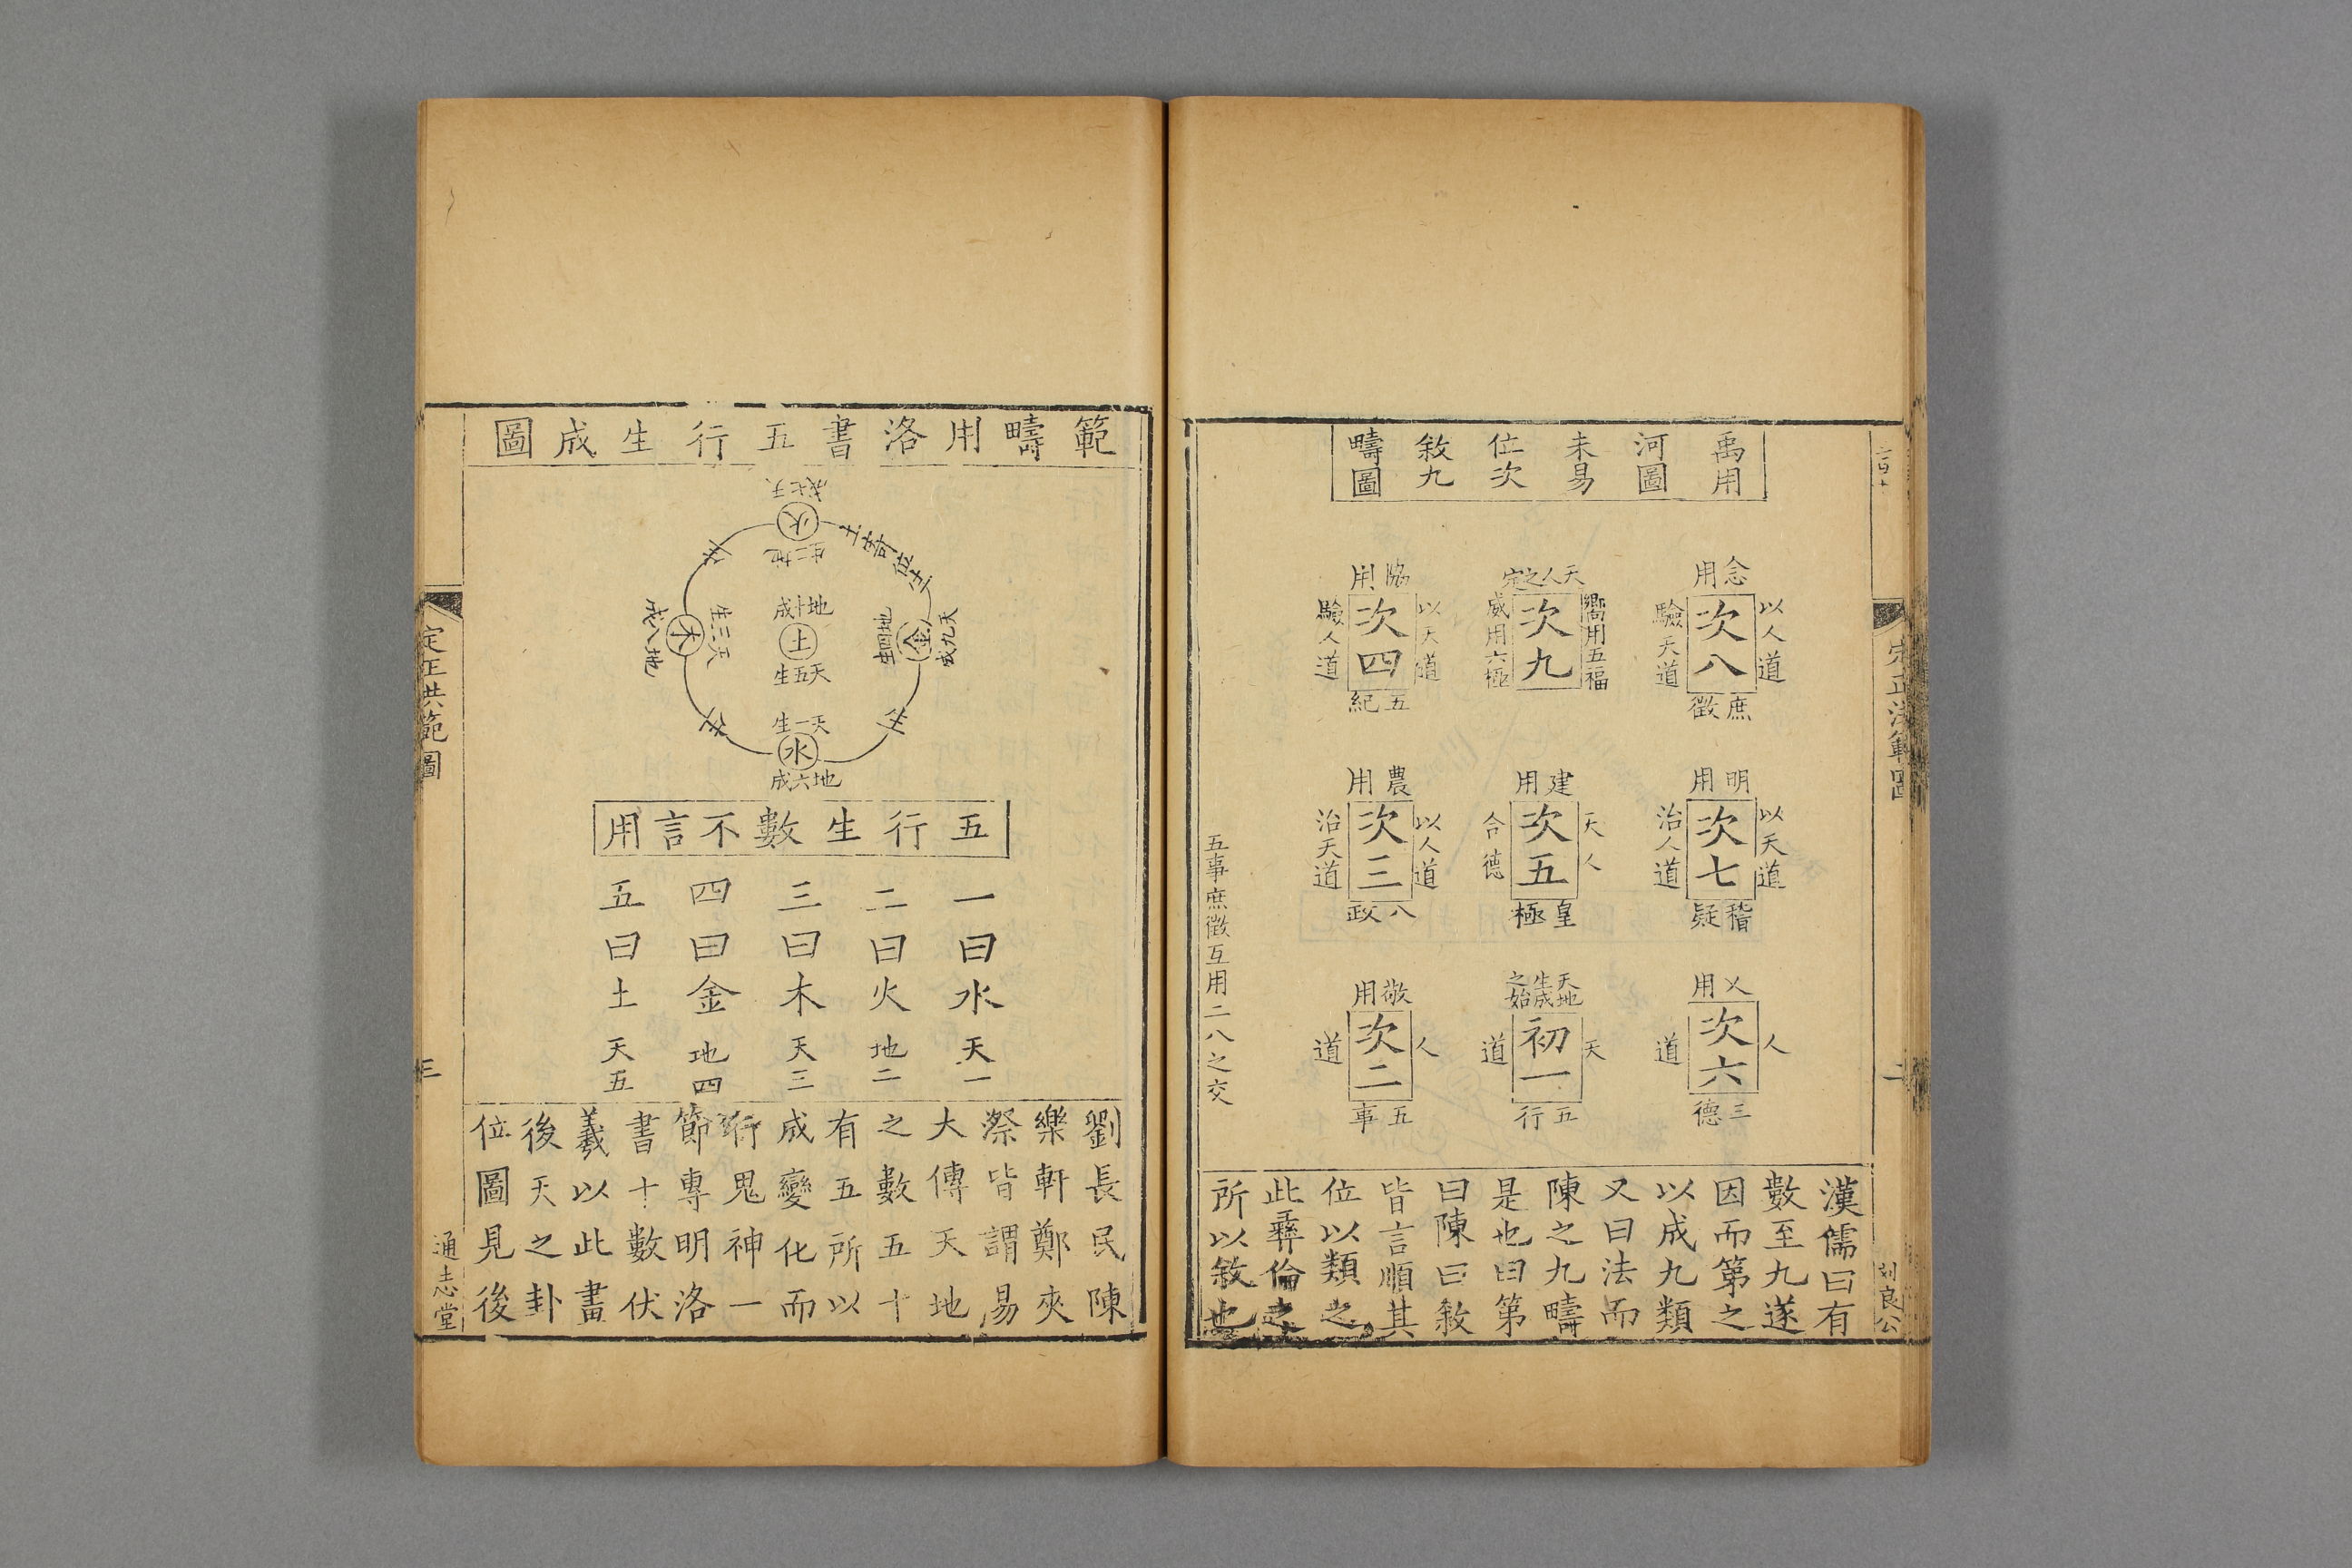 禹用
河圖
未易
位次
敘九
疇圖
念用
以人道
次八
驗天道
庶徵
天人之定
嚮用五福
次九
威用六極
協用
以天道
次四
驗人道
五紀
明用
以天道
次七
治人道
稽疑
建用
天人
次五
合德
皇極
農用
以人道
次三
治天道
八政
乂用
人
次六
道
三德
天地
生成
之始
天
初一
道
五行
敬用
人
次二
道
五事
五事庶徵互用二八之交
漢儒曰有
數至九遂
因而第之
以成九類
又曰法而
陳之九疇
是也曰第
曰陳曰敘
皆言順其
位以類之
此彝倫之
所以敘也
定正洪範圖
二
刘良公
範疇用洛書五行生成圖
天七成
火
地二生
土寄位
天九成
金
地四生
地十成
土
天五生
天三生
木
地八成
天一生
水
地六成
五行生數不言用
一曰水 天一
二曰火 地二
三曰木 天三
四曰金 地四
五曰土 天五
劉長民陳
樂軒鄭夾
漈皆謂易
大傳天地
之數五十
有五所以
成變化而
行鬼神一
節專明洛
書十數伏
羲以此畫
後天之卦
位圖見後
定正洪範圖
三
通志堂